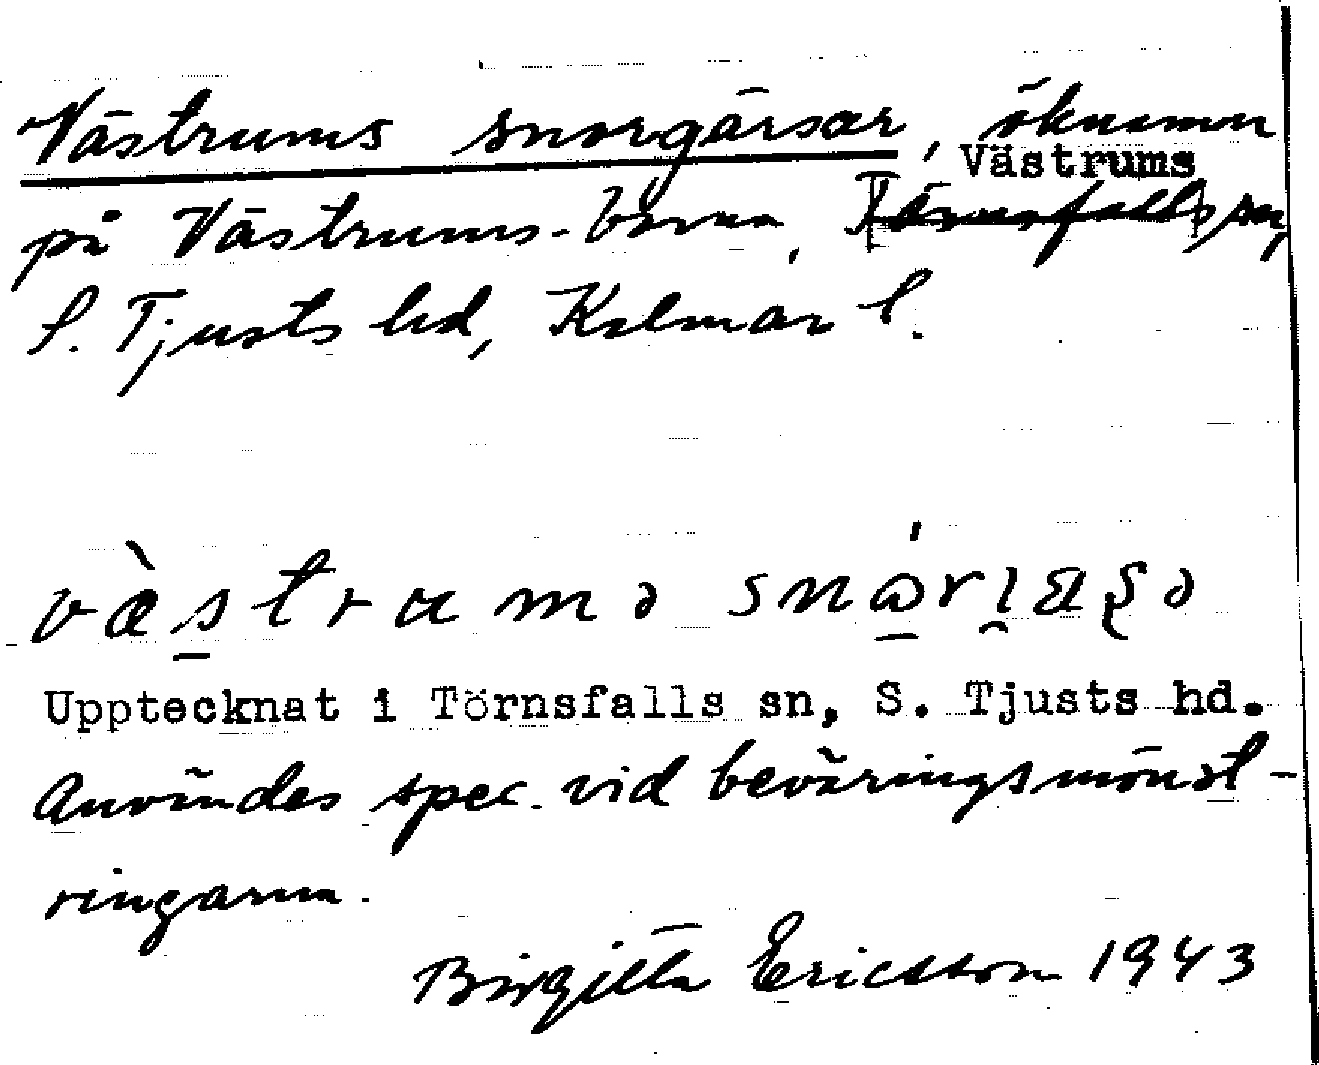 Västrums snorgärsar, öknamn
på Västrums-borna, Västrums sn,
S. Tjusts hd, Kalmar l.
Upptecknat i Törnsfalls sn, S. Tjusts hd.
Användes spec. vid beväringsmönst-
ringarna.
Birgitta Ericsson 1943